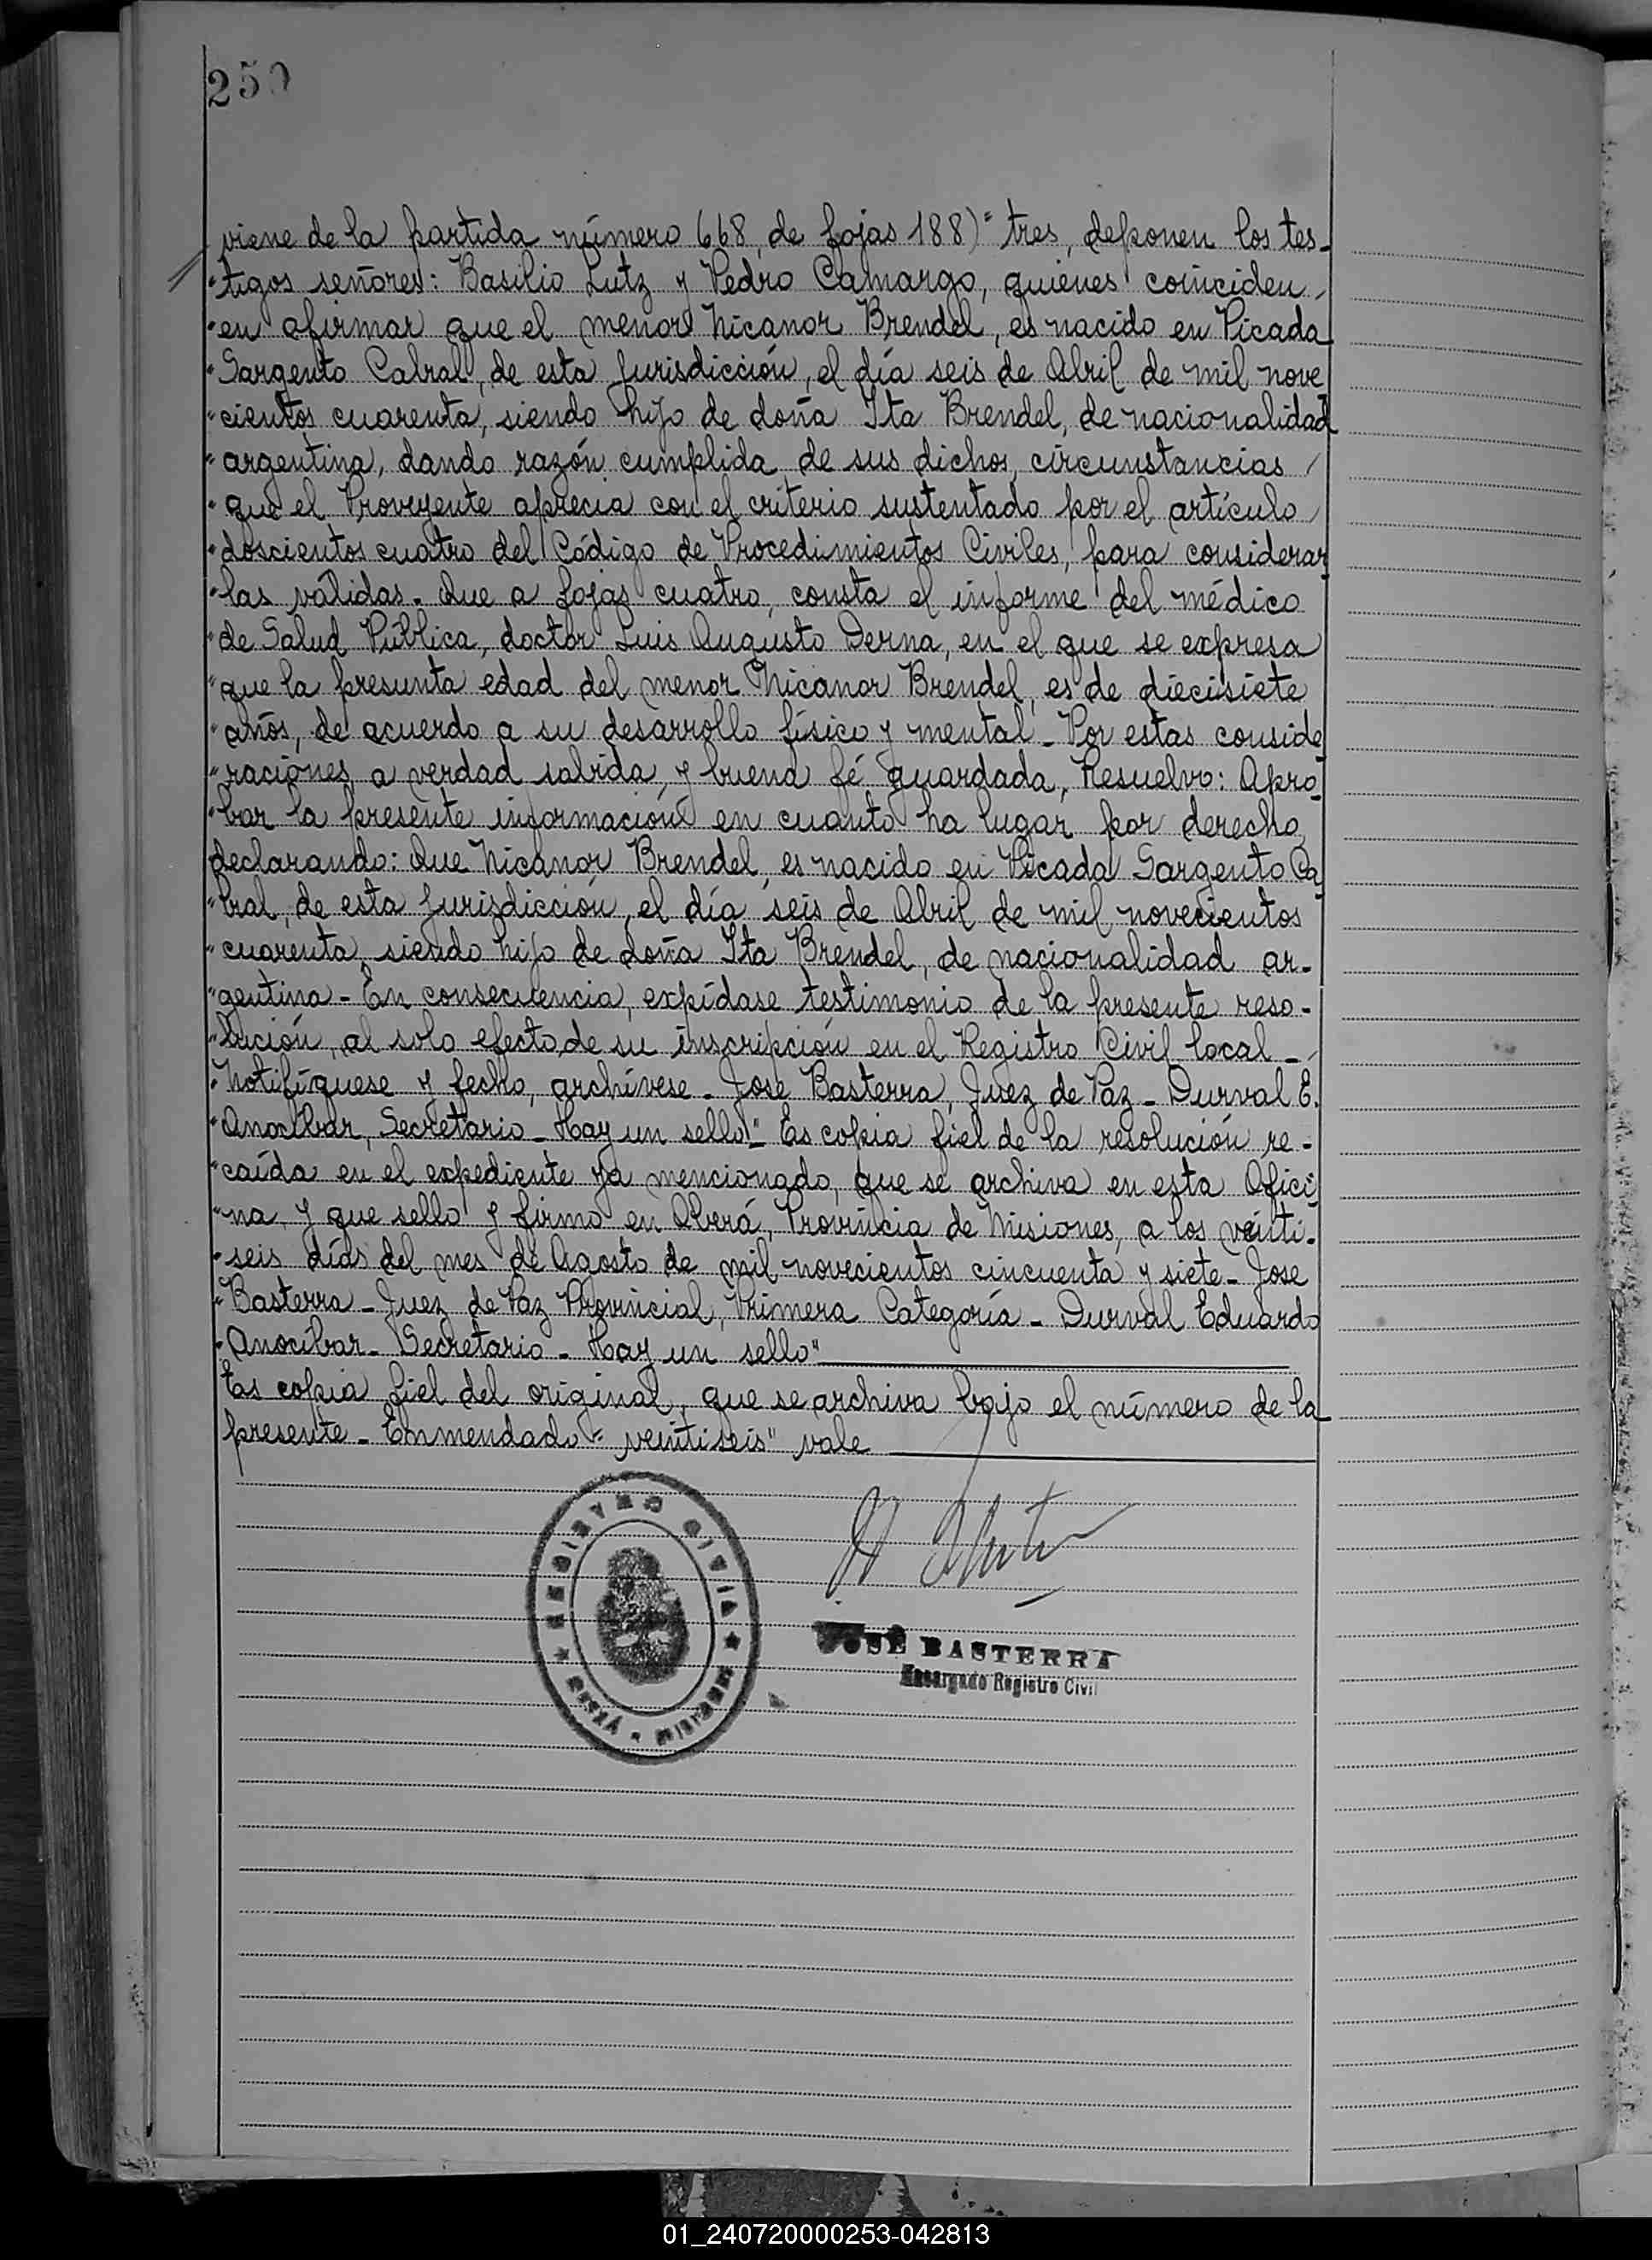 250
viene de la partida número 668, de fojas 188)" tres, deponen los tes-
"tigos señores: Basilio Lutz y Pedro Camargo, quienes coinciden
"en afirmar que el menor Nicanor Brendel, es nacido en Picada
"Sargento Cabral, de esta Jurisdicción, el día seis de Abril de mil nove
"cientos cuarenta, siendo hijo de doña Ita Brendel, de nacionalidad
"argentina, dando razón cumplida de sus dichos, circunstancias
"que el Proveyente aprecia con el criterio sustentado por el artículo
"doscientos cuatro del Código de Procedimientos Civiles, para considerar
"las válidas. Que a fojas cuatro, consta el informe del médico
"de Salud Pública, doctor Luis Augusto Derna, en el que se expresa
"que la presunta edad del menor Nicanor Brendel, es de diecisiete
"años, de acuerdo a su desarrollo físico y mental. Por estas conside
"raciones, a verdad sabida, y buena fé guardada, Resuelvo: Apro
"bar la presente información en cuanto ha lugar por derecho,
declarando: Que Nicanor Brendel, es nacido en Picada Sargento Ca
"bral, de esta Jurisdicción, el día seis de Abril de mil novecientos
"cuarenta, siendo hijo de doña Ita Brendel, de nacionalidad ar-
"gentina - En consecuencia, expídase testimonio de la presente reso-
"lución, al solo efecto de su inscripción en el Registro Civil local -
"Notifíquese y fecho, archívese - Jose Basterra, Juez de Paz - Durval E.
"Anocíbar, Secretario - Hay un sello" - Es copia fiel de la resolución re-
"caída en el expediente ya mencionado, que se archiva en esta Ofici
"na, y que sello y firmo en Oberá, Provincia de Misiones, a los veinti-
"seis días del mes de Agosto de mil novecientos cincuenta y siete - Jose
"Basterra - Juez de Paz Provincial, Primera Categoría - Durval Eduardo
"Anocíbar - Secretario - Hay un sello"
Es copia fiel del original, que se archiva bajo el número de la
presente - Enmendado "veintiseis" vale
REGISTRO CIVIL
OBERÁ MISIONES
JOSÉ BASTERRA
Encargado Registro Civil
01_240720000253-042813